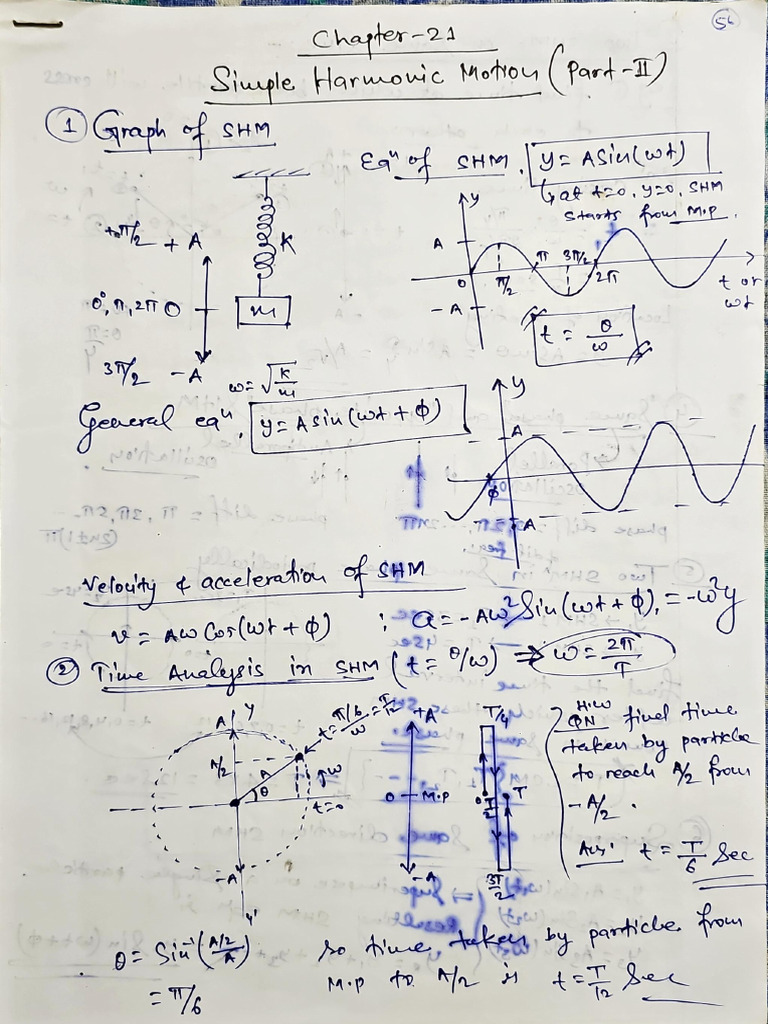 56
Chapter-21
Simple Harmonic Motion (Part-II)
① Graph of SHM
Eqⁿ of SHM, y = A Sin(ωt)
↳ at t=0, y=0, SHM
starts from M.P.
+π/2 + A
K
0°, π, 2π O
m
3π/2 - A
ω = √(K/m)
y
A
O
π/2 π 3π/2 2π
- A
t or
ωt
t = θ/ω
General eqⁿ, y = A sin(ωt + ϕ)
y
A
ϕ
-A
Velocity & acceleration of SHM
v = Aω Cos(ωt + ϕ) ; a = -Aω² Sin(ωt + ϕ), = -ω²y
② Time Analysis in SHM (t = θ/ω) ⇒ ω = 2π/T
A Y
t = (π/6)/ω = T/12
A/2
A
θ
↑ω
t=0
-A
Y'
+A
O M.P
-A
T/4
O T/2 T
3T/2
H.W
QN find time
taken by particle
to reach A/2 from
-A/2.
Ans: t = T/6 Sec
θ = Sin⁻¹((A/2)/A)
= π/6
so time taken by particle from
M.P to A/2 is t = T/12 Sec